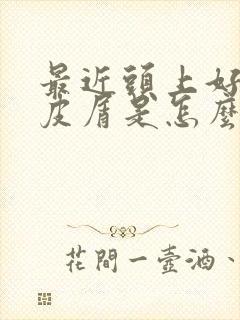 最近頭上好
皮屑是怎麼
花間一壺酒、